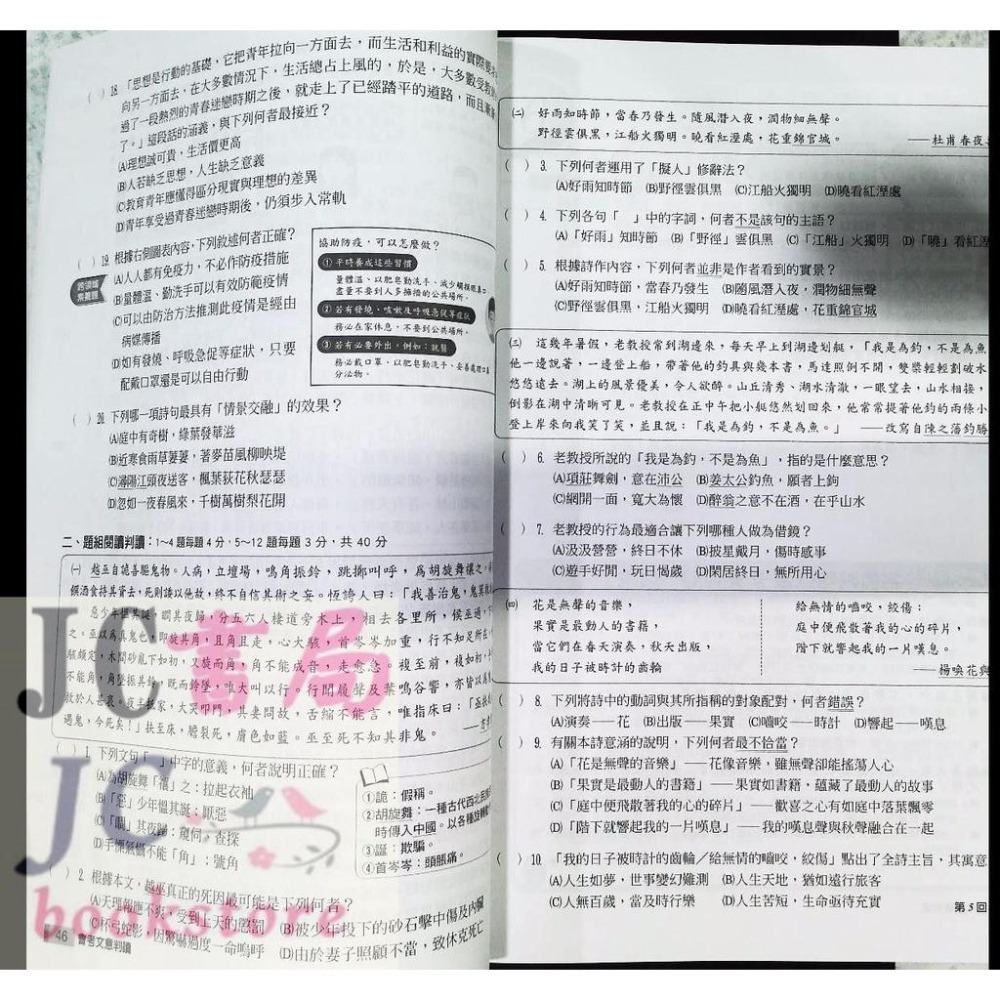 ( ) 18. 「思想是行動的基礎，它把青年拉向一方面去，而生活和利益的實際
向另一方面去，在大多數情況下，生活總占上風的，於是，大多數受
過了一段熱烈的青春迷戀時期之後，就走上了已經踏平的道路，而且
了。」這段話的涵義，與下列何者最接近？
(A)理想誠可貴，生活價更高
(B)人若缺乏思想，人生缺乏意義
(C)教育青年應懂得區分現實與理想的差異
(D)青年享受過青春迷戀時期後，仍須步入常軌
( ) 19. 根據右側圖表內容，下列敘述何者正確？
跨領域
素養題
(A)人人都有免疫力，不必作防疫措施
(B)量體溫、勤洗手可以有效防範疫情
(C)可以由防治方法推測此疫情是經由
病媒傳播
(D)如有發燒、呼吸急促等症狀，只要
配戴口罩還是可以自由行動
協助防疫，可以怎麼做？
①平時養成這些習慣
量體溫、以肥皂勤洗手、減少觸摸眼鼻口
盡量不要到人多擁擠的公共場所。
②若有發燒、咳嗽及呼吸急促等症狀
務必在家休息，不要到公共場所。
③若有必要外出，例如：就醫
務必戴口罩、以肥皂勤洗手、妥善處理口鼻
分泌物。
( ) 20. 下列哪一項詩句最具有「情景交融」的效果？
(A)庭中有奇樹，綠葉發華滋
(B)近寒食雨草萋萋，著麥苗風柳映堤
(C)潯陽江頭夜送客，楓葉荻花秋瑟瑟
(D)忽如一夜春風來，千樹萬樹梨花開
二、題組閱讀判讀：1～4 題每題 4 分，5～12 題每題 3 分，共 40 分
(一) 越巫自詭善驅鬼物。人病，立壇場，鳴角振鈴，跳擲叫呼，為胡旋舞禳之。
饌酒食持其貲去，死則諉以他故，終不自信其術之妄。恆誇人曰：「我善治鬼，鬼莫敢
惡少年慍其誕，瞷其夜歸，分五六人棲道旁木上，相去各里所，候巫過，
之。巫以為真鬼也，即旋其角，且角且走，心大駭，首岑岑加重，行不知足所在。
駭頗定，木間砂亂下如初，又旋而角，角不能成音，走愈急。復至前，復如初，
不能角，角墜振其鈴，既而鈴墜，唯大叫以行。行聞履聲及葉鳴谷響，亦皆以為
於人甚哀。夜半抵家，大哭叩門，其妻問故，舌縮不能言，唯指床曰：「亟扶
遇鬼，今死矣！」扶至床，膽裂死，膚色如藍。巫至死不知其非鬼。
( ) 1. 下列文句「 」中字的意義，何者說明正確？
(A)為胡旋舞「禳」之：拉起衣袖
(B)「惡」少年慍其誕：厭惡
(C)「瞷」其夜歸：窺伺、查探
(D)手慄氣懾不能「角」：號角
①詭：假稱。
②胡旋舞：一種古代西北
時傳入中國。以各種旋轉
③誕：欺騙。
④首岑岑：頭脹痛。
( ) 2. 根據本文，越巫真正的死因最可能是下列何者？
(A)天理報應不爽，受到上天的懲罰 (B)被少年投下的砂石擊中傷及內臟
(C)杯弓蛇影，因驚嚇過度一命嗚呼 (D)由於妻子照顧不當，致休克死亡
46 會考文意判讀
(二) 好雨知時節，當春乃發生。隨風潛入夜，潤物細無聲。
野徑雲俱黑，江船火獨明。曉看紅溼處，花重錦官城。
——杜甫春夜
( ) 3. 下列何者運用了「擬人」修辭法？
(A)好雨知時節 (B)野徑雲俱黑 (C)江船火獨明 (D)曉看紅溼處
( ) 4. 下列各句「 」中的字詞，何者不是該句的主語？
(A)「好雨」知時節 (B)「野徑」雲俱黑 (C)「江船」火獨明 (D)「曉」看紅溼
( ) 5. 根據詩作內容，下列何者並非是作者看到的實景？
(A)好雨知時節，當春乃發生 (B)隨風潛入夜，潤物細無聲
(C)野徑雲俱黑，江船火獨明 (D)曉看紅溼處，花重錦官城
(三) 這幾年暑假，老教授常到湖邊來，每天早上到湖邊划艇，「我是為釣，不是為魚
他一邊說著，一邊登上船，帶著他的釣具與幾本書，馬達照例不開，雙槳輕輕劃破水
悠悠遠去。湖上的風景優美，令人欲醉。山丘清秀、湖水清澈，一眼望去，山水相接，
倒影在湖中清晰可見。老教授在正中午把小艇悠然划回來，他常常提著他釣的兩條小
登上岸來向我笑了笑，並且說：「我是為釣，不是為魚。」 ——改寫自陳之藩釣勝
( ) 6. 老教授所說的「我是為釣，不是為魚」，指的是什麼意思？
(A)項莊舞劍，意在沛公 (B)姜太公釣魚，願者上鉤
(C)網開一面，寬大為懷 (D)醉翁之意不在酒，在乎山水
( ) 7. 老教授的行為最適合讓下列哪種人做為借鏡？
(A)汲汲營營，終日不休 (B)披星戴月，傷時感事
(C)遊手好閒，玩日愒歲 (D)閑居終日，無所用心
(四) 花是無聲的音樂，
果實是最動人的書籍，
當它們在春天演奏，秋天出版，
我的日子被時計的齒輪
給無情的嚙咬，絞傷；
庭中便飛散著我的心的碎片，
階下就響起我的一片嘆息。
——楊喚花與
( ) 8. 下列將詩中的動詞與其所指稱的對象配對，何者錯誤？
(A)演奏——花 (B)出版——果實 (C)嚙咬——時計 (D)響起——嘆息
( ) 9. 有關本詩意涵的說明，下列何者最不恰當？
(A)「花是無聲的音樂」——花像音樂，雖無聲卻能搖蕩人心
(B)「果實是最動人的書籍」——果實如書籍，蘊藏了最動人的故事
(C)「庭中便飛散著我的心的碎片」——歡喜之心有如庭中落葉飄零
(D)「階下就響起我的一片嘆息」——我的嘆息聲與秋聲融合在一起
( ) 10. 「我的日子被時計的齒輪／給無情的嚙咬，絞傷」點出了全詩主旨，其寓意
(A)人生如夢，世事變幻難測 (B)人生天地，猶如遠行旅客
(C)人無百歲，當及時行樂 (D)人生苦短，生命亟待充實
第 5 回
JC書局
JC
bookstore